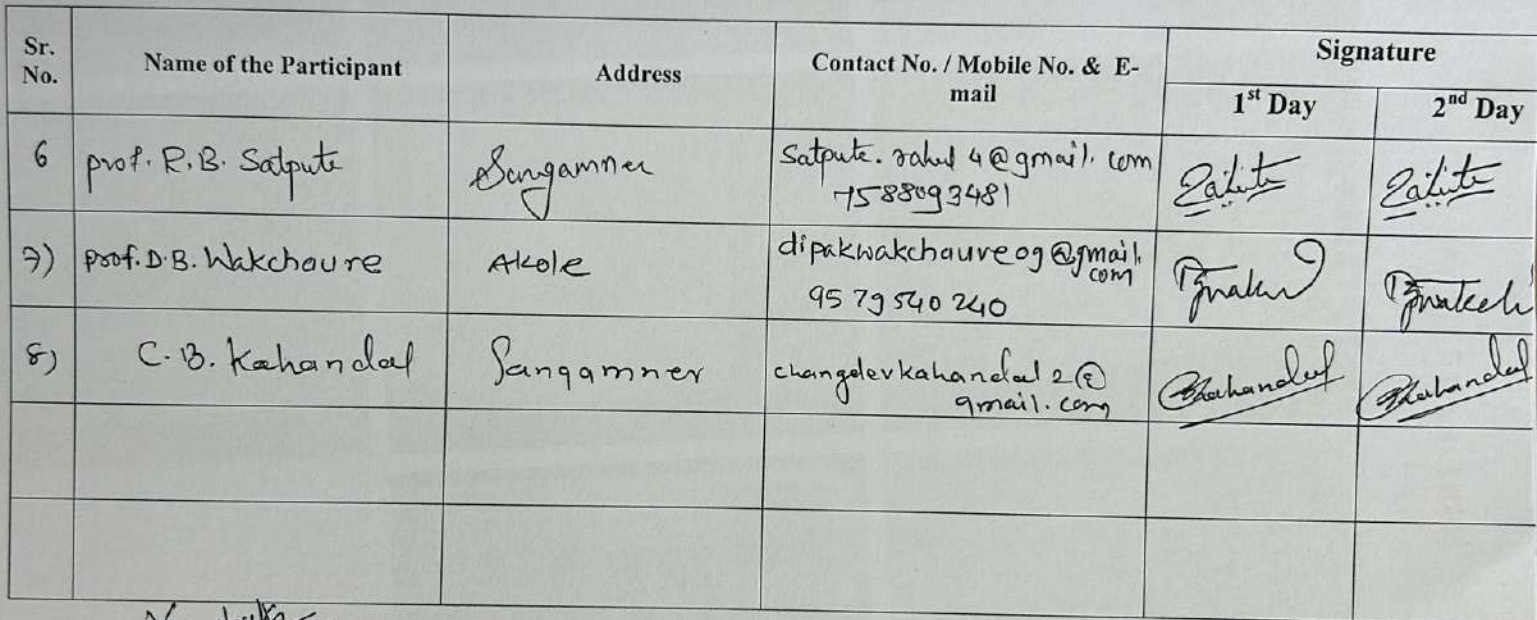 Sr. No.
Name of the Participant
Address
Contact No. / Mobile No. & E-
mail
Signature
1st Day
2nd Day
6
prof. R.B. Satpute
Sangamner
Satpute.rahul4@gmail.com
7588093481
7)
prof. D.B. Wakchaure
Akole
dipakwakchaure09@gmail.
com
9579540240
8)
C.B. Kahandal
Sangamner
changdevkahandal2@
gmail.com